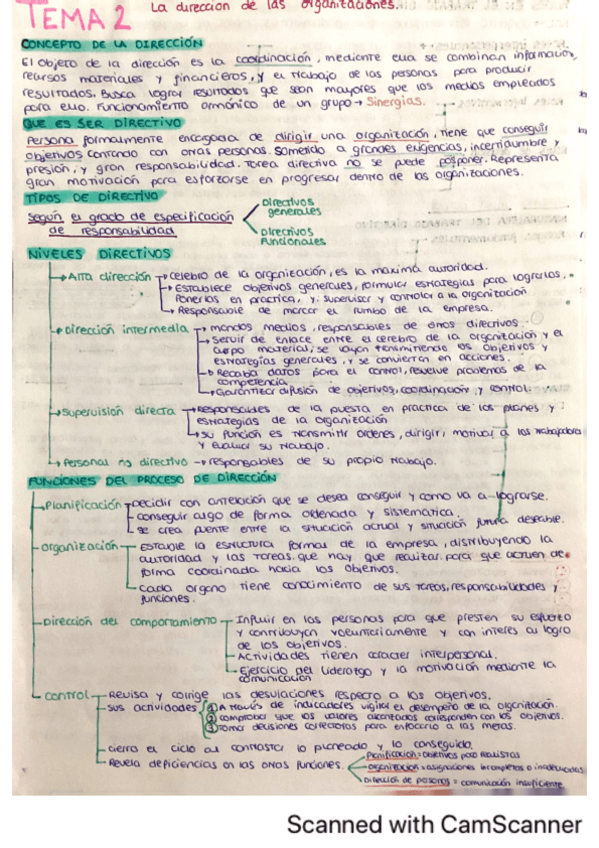 TEMA 2 La dirección de las organizaciones.
CONCEPTO DE LA DIRECCIÓN
El objeto de la dirección es la coordinación, mediante ella se combinan información,
recursos materiales y financieros, y el trabajo de las personas para producir
resultados. Busca lograr resultados que sean mayores que los medios empleados
para ello. Funcionamiento armónico de un grupo → Sinergias.
QUE ES SER DIRECTIVO
Persona formalmente encargada de dirigir una organización, tiene que conseguir
objetivos contando con otras personas. Sometido a grandes exigencias, incertidumbre y
presión, y gran responsabilidad. Tarea directiva no se puede posponer. Representa
gran motivación para esforzarse en progresar dentro de las organizaciones.
TIPOS DE DIRECTIVO
Según el grado de especificación
de responsabilidad
Directivos
generales
Directivos
Funcionales
NIVELES DIRECTIVOS
→ Alta dirección → celebro de la organización, es la maxima autoridad.
→ Establece objetivos generales, formular estrategias para lograrlas.
Ponerlas en practica, y supervisar y controlar a la organización
→ Responsable de marcar el rumbo de la empresa.
→ Dirección intermedia → mandos medios, responsables de otros directivos.
→ Servir de enlace entre el cerebro de la organización y el
cuerpo material, se vayan transmitiendo los objetivos y
estrategias generales, y se conviertan en acciones.
→ Recaba datos para el control, resuelve problemas de la
competencia
→ Garantizar difusión de objetivos, coordinación y control.
→ Supervisión directa → Responsables de la puesta en practica de los planes y
estrategias de la organización
→ su función es transmitir ordenes, dirigir, motivar a los trabajadores
y evaluar su trabajo.
→ Personal no directivo → responsables de su propio trabajo.
FUNCIONES DEL PROCESO DE DIRECCIÓN
Planificación Decidir con antelación que se desea conseguir y como va a lograrse.
conseguir algo de forma ordenada y sistematica.
se crea puente entre la situación actual y situación futura deseable.
organización Estable la estructura formal de la empresa, distribuyendo la
autoridad y las tareas que hay que realizar para que actuen de
forma coordinada hacia los objetivos.
Cada organo tiene conocimiento de sus tareas, responsabilidades y
funciones.
Dirección del comportamiento Influir en las personas para que presten su esfuerzo
y contribuyan voluntariamente y con interes al logro
de los objetivos.
Actividades tienen caracter interpersonal.
Ejercicio del liderazgo y la motivación mediante la
comunicación
control Revisa y corrige las desviaciones respecto a los objetivos.
sus actividades ① A través de indicadores vigilar el desempeño de la organización.
② comprobar que los valores alcanzados corresponden con los objetivos.
③ Tomar decisiones correctoras para enfocarlo a las metas.
cierra el ciclo al contrastar lo planeado y lo conseguido.
Revela deficiencias en las otras funciones.
Planificación: objetivos poco realistas
organización: asignaciones incompletas o inadecuadas
Dirección de personas = comunicación insuficiente
Scanned with CamScanner